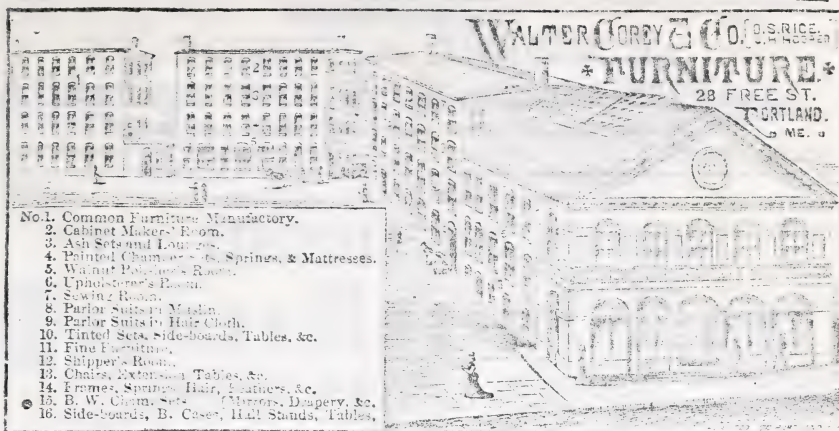 WALTER COREY & CO. O.S. RICE.
FURNITURE.
28 FREE ST.
PORTLAND.
ME.
No.1. Common Furniture Manufactory.
2. Cabinet Makers' Room.
3. Ash Sets and Lounges.
4. Painted Chamber Sets, Springs, & Mattresses.
5. Walnut Room.
6. Upholsterer's Room.
7. Sewing Room.
8. Parlor Suits in Muslin.
9. Parlor Suits in Hair Cloth.
10. Tinted Sets, Side-boards, Tables, &c.
11. Fine Furniture.
12. Shipper's Room.
13. Chairs, Extension Tables, &c.
14. Frames, Springs, Hair, Feathers, &c.
15. B. W. Cham. Sets Mirrors, Drapery, &c.
16. Side-boards, B. Cases, Hall Stands, Tables,